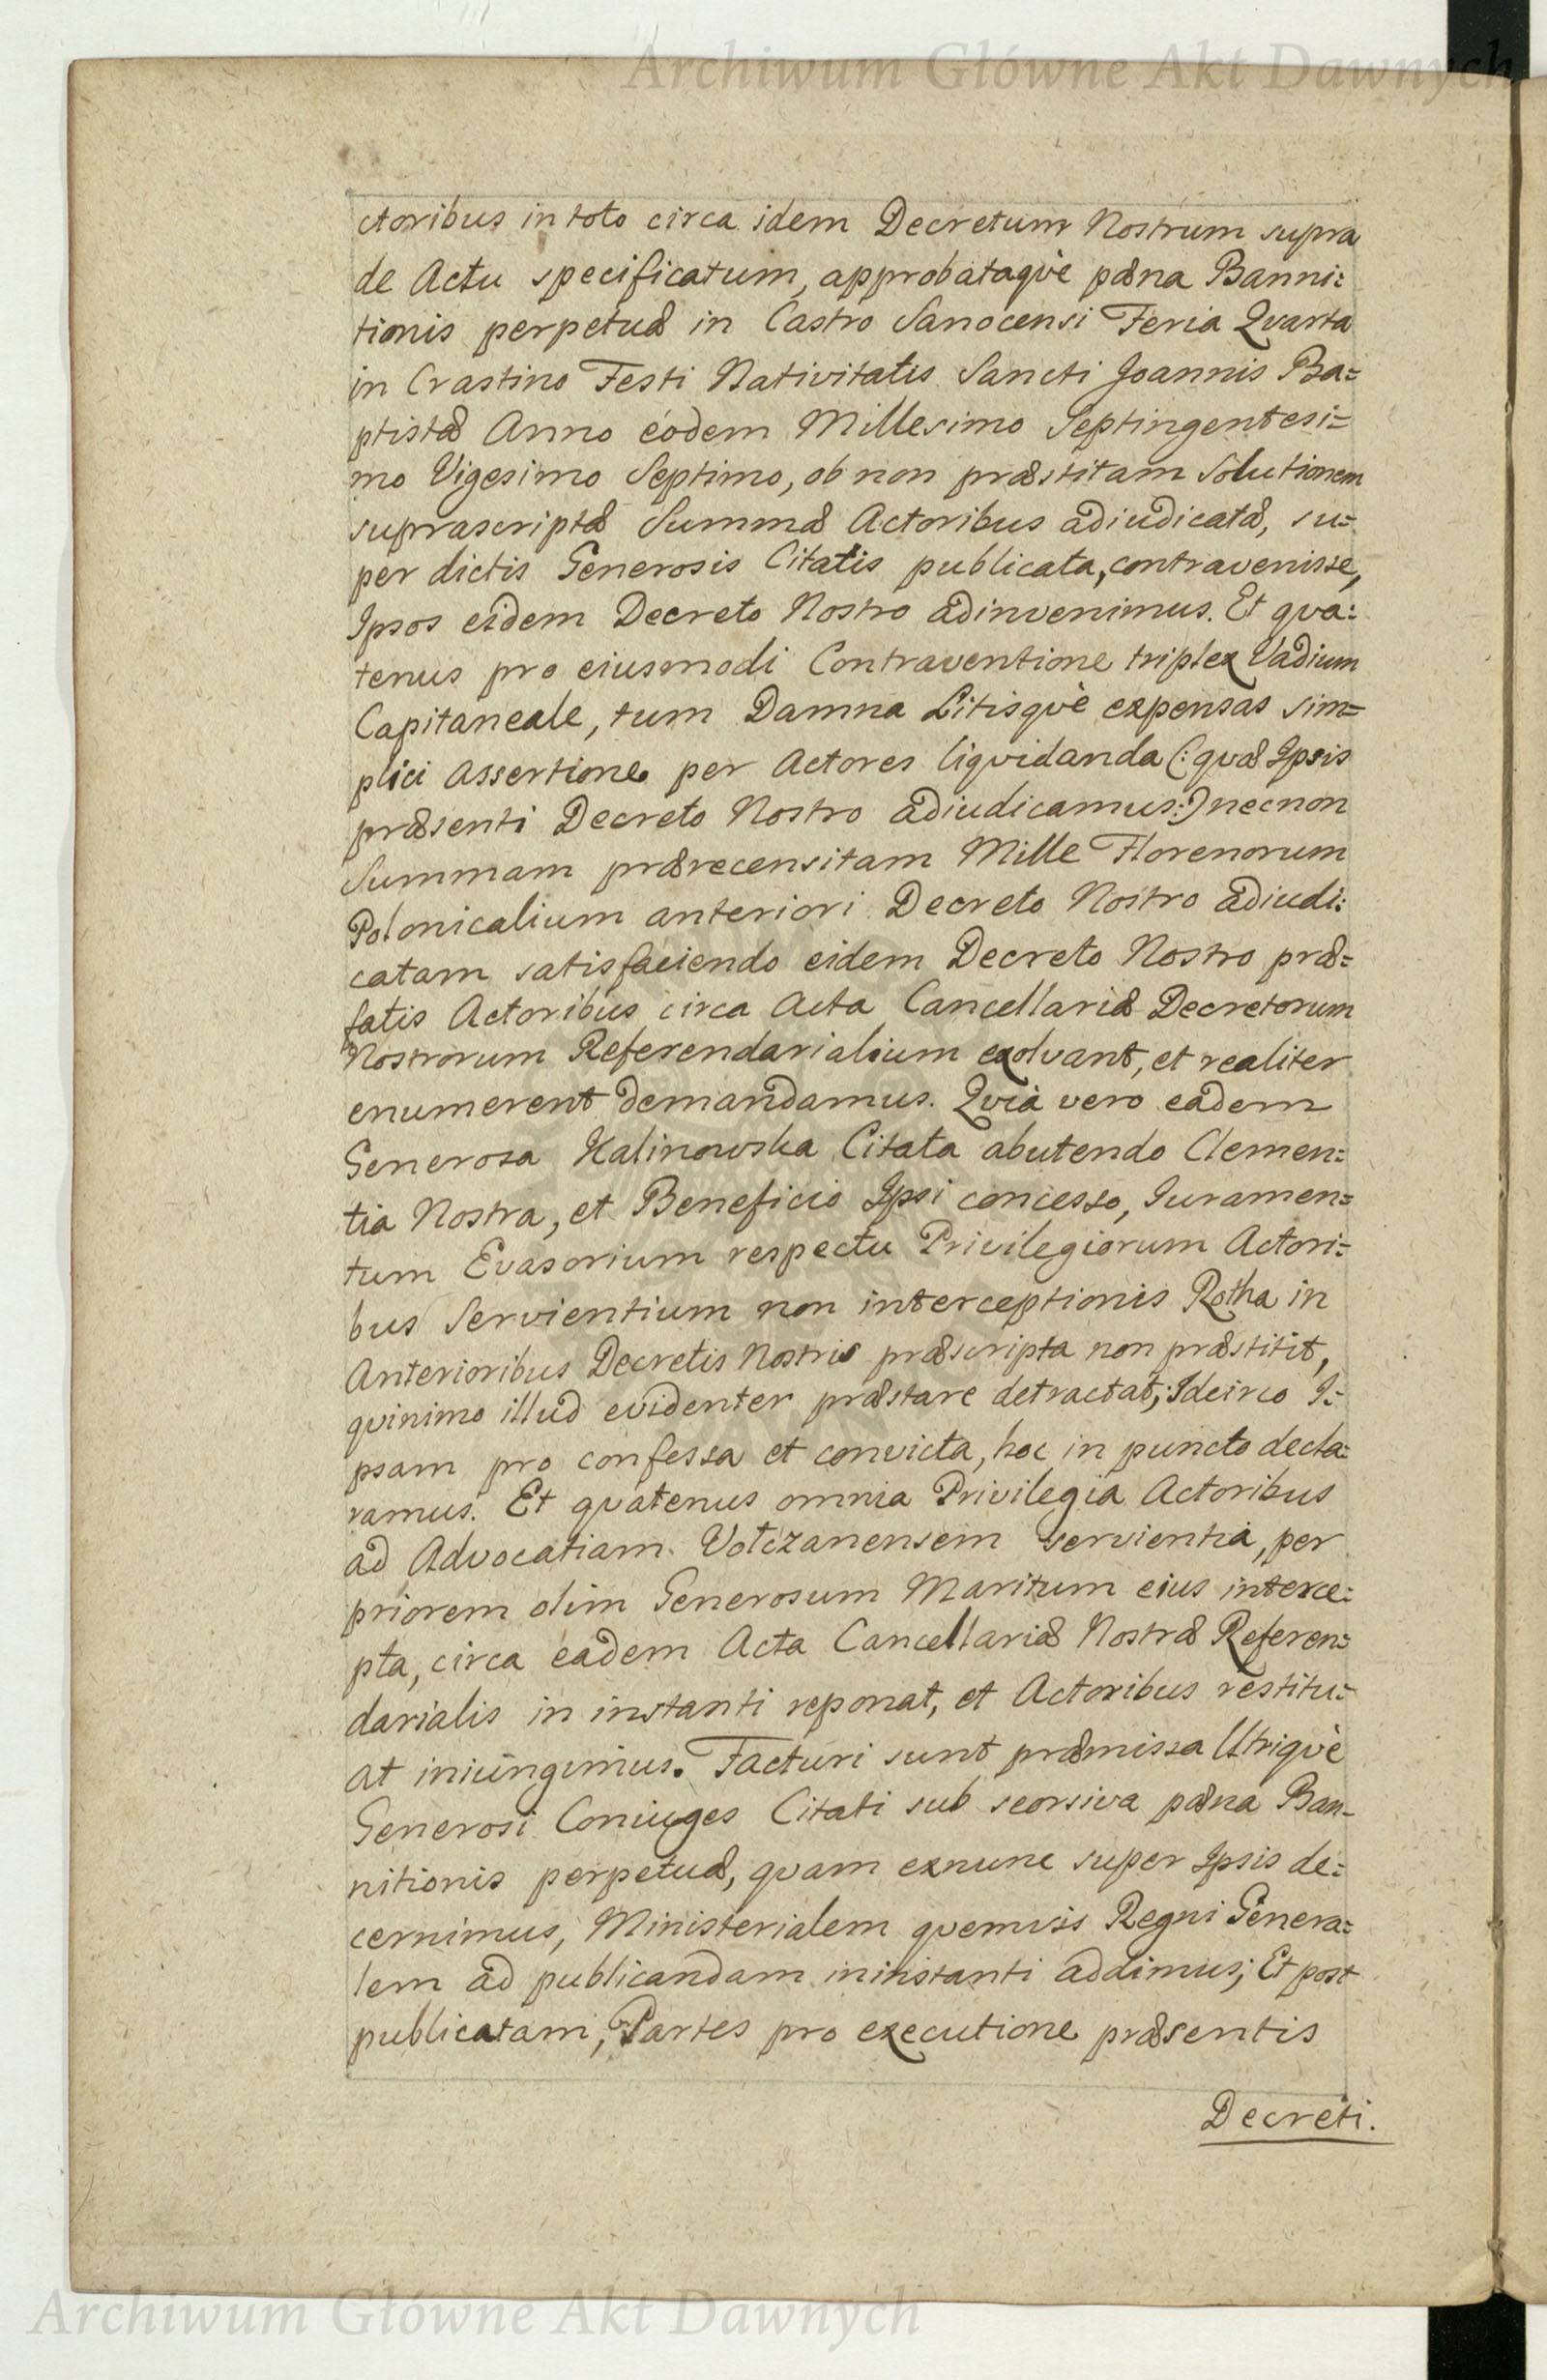 Archiwum Główne Akt Dawnych
ctoribus in toto circa idem Decretum Nostrum supra
de Actu specificatum, approbataqvè pæna Banni:
tionis perpetuæ in Castro Sanocensi Feria Qvarta
in Crastino Festi Nativitatis Sancti Joannis Ba=
ptistæ Anno eodem Millesimo Septingentesi=
mo Vigesimo Septimo, ob non præstitam Solutionem
suprascriptæ Summæ Actoribus adiudicatæ, su=
per dictis Generosis Citatis publicata, contravenisse,
Ipsos eidem Decreto Nostro adinvenimus. Et qva:
tenus pro eiusmodi Contraventione triplex Vadium
Capitaneale, tum Damna Litisqvè expensas sim=
plici Assertione per Actores liqvidanda (: qvæ Ipsis
præsenti Decreto Nostro adiudicamus :) necnon
Summam prærecensitam Mille Florenorum
Polonicalium anteriori Decreto Nostro adiudi:
catam satisfaciendo eidem Decreto Nostro præ=
fatis Actoribus circa Acta Cancellariæ Decretorum
Nostrorum Referendarialium exolvant, et realiter
enumerent demandamus. Qvia vero eadem
Generosa Kalinowska Citata abutendo Clemen:
tia Nostra, et Beneficio Ipsi concesso, Iuramen=
tum Evasorium respectu Privilegiorum Actori=
bus Servientium non interceptionis Rotha in
Anterioribus Decretis Nostris præscripta non præstitit,
qvinimo illud evidenter præstare detractat; Idcirco I:
psam pro confessa et convicta, hoc in puncto decla:
ramus. Et qvatenus omnia Privilegia Actoribus
ad Advocatiam Votczanensem servientia, per
priorem olim Generosum Maritum eius interce:
pta, circa eadem Acta Cancellariæ Nostræ Referen:
darialis in instanti reponat, et Actoribus restitu:
at iniungimus. Facturi sunt præmissa Utriqvè
Generosi Coniuges Citati sub seorsiva pæna Ban-
nitionis perpetuæ, qvam exnunc super Ipsis de:
cernimus, Ministerialem qvemvis Regni Genera:
lem ad publicandam in instanti addimus; Et post
publicatam, Partes pro executione præsentis
Decreti.
Archiwum Główne Akt Dawnych